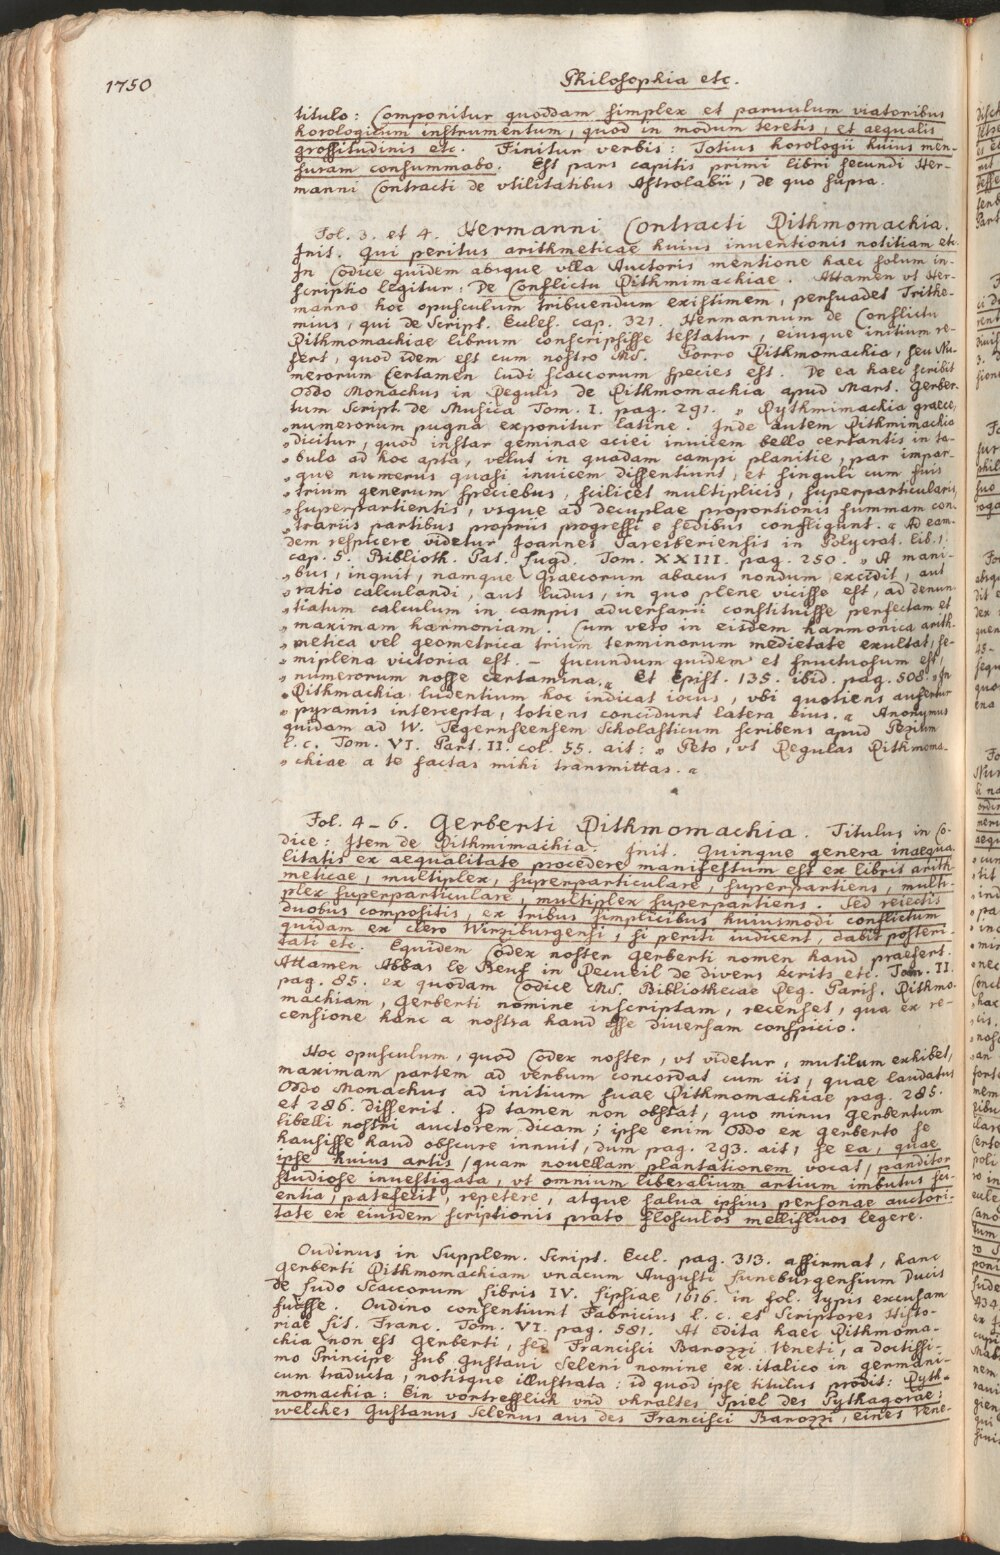 1750
Philosophia etc.
titulo: Componitur quoddam simplex et paruulum viatoribus
horologicum instrumentum, quod in modum teretis, et aequalis
grossitudinis etc. Finitur verbis: Totius horologii huius men-
suram consummabo. Est pars capitis primi libri secundi Her-
manni Contracti de vtilitatibus Astrolabii, de quo supra.
Fol. 3. et 4. Hermanni Contracti Rithmomachia.
Init. Qui peritus arithmeticae huius inuentionis notitiam etc.
In Codice quidem absque vlla Auctoris mentione haec solum in-
scriptio legitur: De Conflictu Rithmimachiae. Attamen vt Her-
manno hoc opusculum tribuendum existimem, persuadet Trithe-
mius, qui de Script. Eccles. cap. 321. Hermannum de Conflictu
Rithmomachiae librum conscripsisse testatur, eiusque initium re-
fert, quod idem est cum nostro MS. Porro Rithmomachia, seu Nu-
merorum Certamen ludi scaccorum species est. De ea haec scribit
Oddo Monachus in Regulis de Rithmomachia apud Mart. Gerber-
tum Script. de Musica Tom. I. pag. 291. „ Rythmimachia graece,
„ numerorum pugna exponitur latine. Inde autem Rithmimachia
„ dicitur, quod instar geminae aciei inuicem bello certantis in ta-
„ bula ad hoc apta, velut in quadam campi planitie, par impar-
„ que numerus quasi inuicem dissentiunt, et singuli cum suis
„ trium generum speciebus, scilicet multiplicis, superparticularis,
„ superpartientis, vsque ad decuplae proportionis summam con-
„ trariis partibus propriis progressi e sedibus confligunt. “ Ad eam-
dem respicere videtur Joannes Saresberiensis in Polycrat. lib. 1.
cap. 5. Biblioth. Pat. Lugd. Tom. XXIII. pag. 250. „ A mani-
„ bus, inquit, namque Graecorum abacus nondum excidit, aut
„ ratio calculandi, aut ludus, in quo plene vicisse est, ad denun-
„ tiatum calculum in campis aduersarii constituisse perfectam et
„ maximam harmoniam. Cum vero in eisdem harmonica arith-
„ metica vel geometrica trium terminorum medietate exultat, se-
„ miplena victoria est. – Jucundum quidem et fructuosum est,
„ numerorum nosse certamina. “ Et Epist. 135. ibid. pag. 508. „ In
„ Rithmachia ludentium hoc indicat iocus, vbi quotiens aufertur
„ pyramis intercepta, totiens concidunt latera eius. “ Anonymus
quidam ad W. Tegernseensem Scholasticum scribens apud Pezium
l. c. Tom. VI. Part. II. col. 55. ait: „ Peto, vt Regulas Rithmoma-
„ chiae a te factas mihi transmittas. “
Fol. 4–6. Gerberti Rithmomachia. Titulus in Co-
dice: Item de Rithmimachia. Init. Quinque genera inaequa-
litatis ex aequalitate procedere manifestum est ex libris arith-
meticae, multiplex, superparticulare, superpartiens, multi-
plex superparticulare, multiplex superpartiens. Sed reiectis
duobus compositis, ex tribus simplicibus huiusmodi conflictum
quidam ex clero Wirziburgensi, si periti iudicent, dabit posteri-
tati etc. Equidem Codex noster Gerberti nomen haud praefert.
Attamen Abbas le Beuf in Recueil de divers écrits etc. Tom. II.
pag. 85. ex quodam Codice MS. Bibliothecae Reg. Paris. Rithmo-
machiam, Gerberti nomine inscriptam, recenset, qua ex re-
censione hanc a nostra haud esse diuersam conspicio.
Hoc opusculum, quod Codex noster, vt videtur, mutilum exhibet,
maximam partem ad verbum concordat cum iis, quae laudatus
Oddo Monachus ad initium suae Rithmomachiae pag. 285.
et 286. disserit. Id tamen non obstat, quo minus Gerbertum
libelli nostri auctorem dicam; ipse enim Oddo ex Gerberto se
hausisse haud obscure innuit, dum pag. 293. ait, se ea, quae
ipse huius artis (quam nouellam plantationem vocat) panditor
studiose inuestigata, vt omnium liberalium artium imbutus sci-
entia, patefecit, repetere, atque salua ipsius personae auctori-
tate ex eiusdem scriptionis prato flosculos mellifluos legere.
Oudinus in Supplem. Script. Eccl. pag. 313. affirmat, hanc
Gerberti Rithmomachiam vnacum Augusti Luneburgensium Ducis
de Ludo Scaccorum libris IV. Lipsiae 1616. in fol. typis excusam
fuisse. Oudino consentiunt Fabricius l. c. et Scriptores Histo-
riae Lit. Franc. Tom. VI. pag. 581. At edita haec Rithmoma-
chia non est Gerberti, sed Francisci Barozzi Veneti, a doctissi-
mo Principe sub Gustaui Seleni nomine ex italico in germani-
cum traducta, notisque illustrata: id quod ipse titulus prodit: Ryth-
momachia: Ein vortrefflich vnd vhraltes Spiel des Pythagorae:
welches Gustanus Selenus aus des Francisci Barozzi, eines Vene-